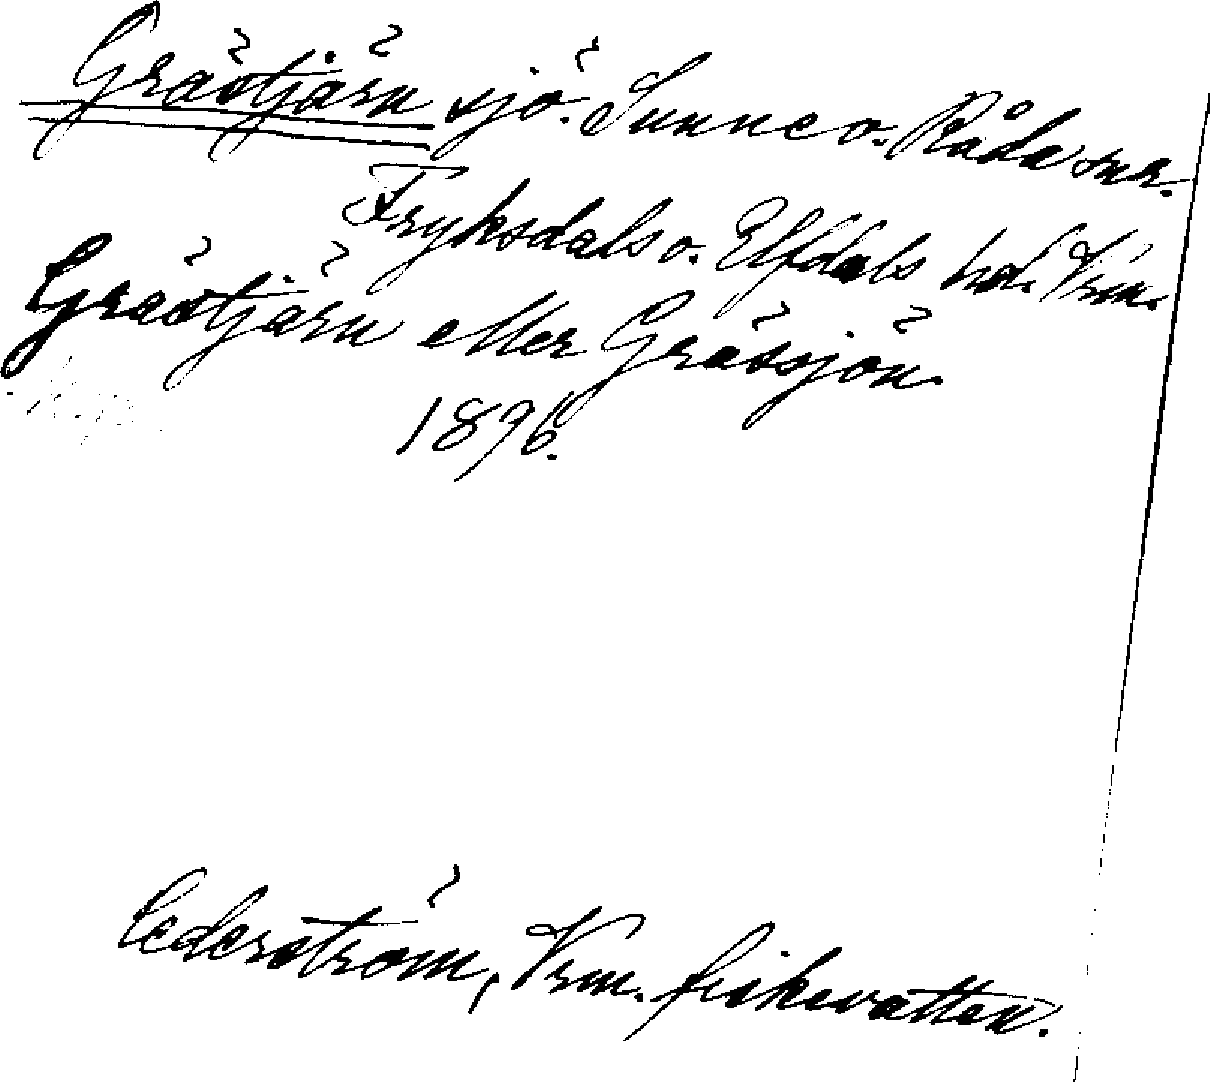 Grästjärn sjö. Sunne o. Råda snr.
Fryksdals o. Elfdals hd. Vrm.
Grästjärn eller Grässjön
1896.
Cederström, Vrm. fiskevatten.